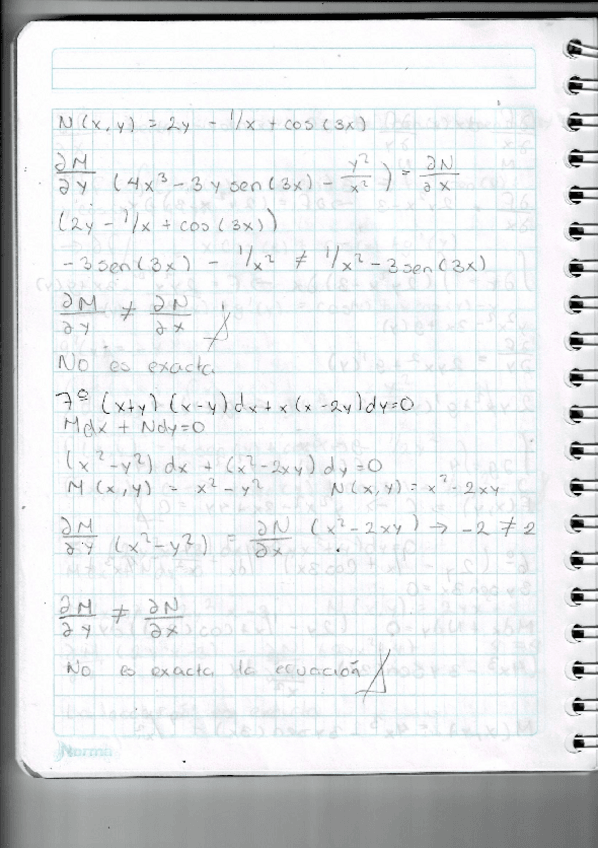 N(x,y) = 2y - 1/x + cos(3x)
∂M/∂y (4x³ - 3y sen(3x) - y²/x²) = ∂N/∂x
(2y - 1/x + cos(3x))
-3sen(3x) - 1/x² ≠ 1/x² - 3sen(3x)
∂M/∂y ≠ ∂N/∂x
No es exacta
7º (x+y) (x-y)dx + x(x-2y)dy=0
Mdx + Ndy=0
(x²-y²) dx + (x²-2xy) dy=0
M(x,y) = x²-y² N(x,y)=x²-2xy
∂M/∂y (x²-y²) = ∂N/∂x (x²-2xy) → -2 ≠ 2
∂M/∂y ≠ ∂N/∂x
No es exacta la ecuación
Norma